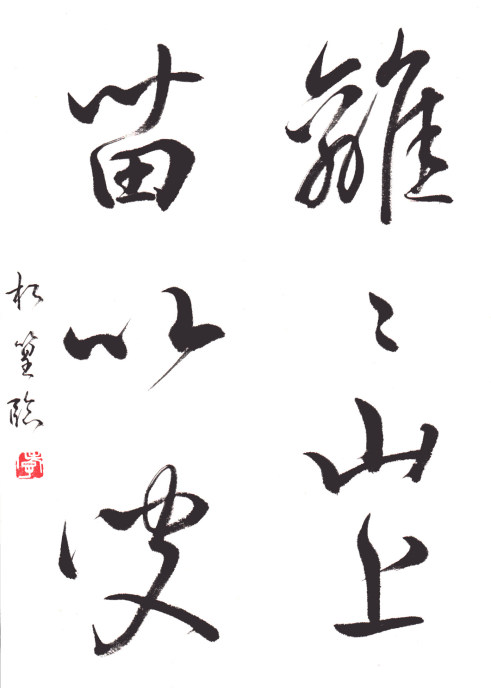 離〻山上
苗以彼
松篁臨